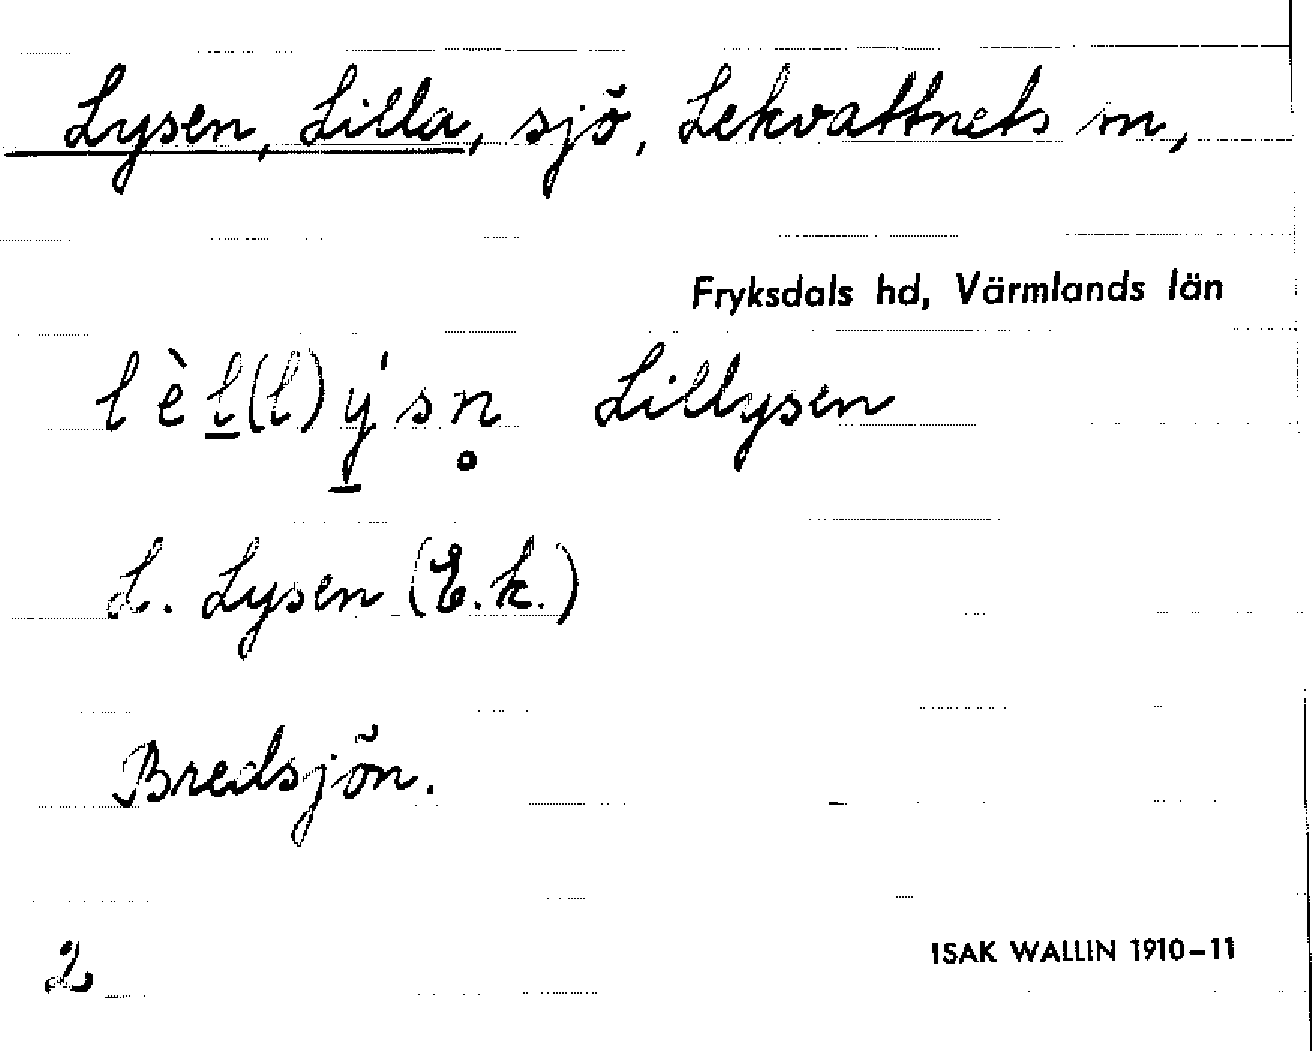 Lysen, Lilla, sjö, Lekvattnets sn,
Fryksdals hd, Värmlands län
l è l̲(l) ý̲ s n̥ Lillysen
L. Lysen (E.k.)
Bredsjön.
2
ISAK WALLIN 1910–11